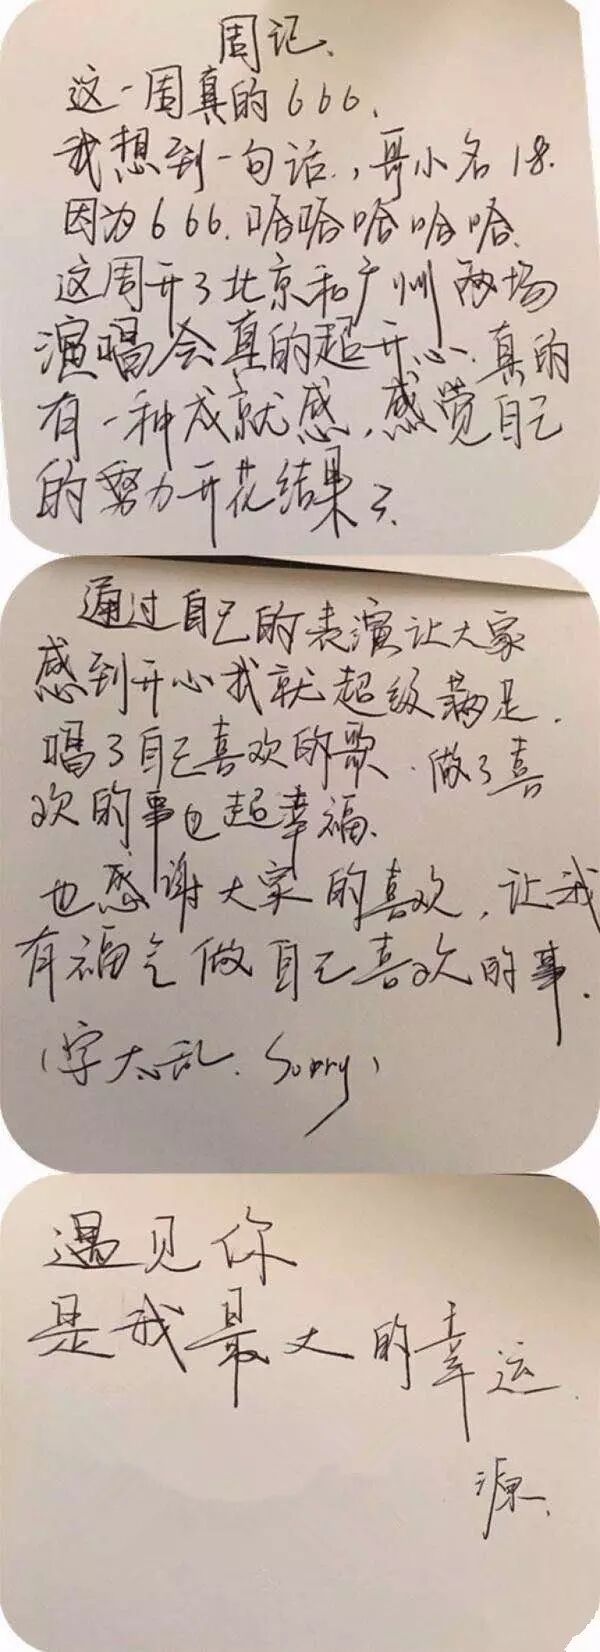 周记.
这一周真的666.
我想到一句话.,哥小名18.
因为666.哈哈哈哈哈.
这周开了北京和广州两场
演唱会真的超开心.真的
有一种成就感,感觉自己
的努力开花结果了.
通过自己的表演让大家
感到开心我就超级满足.
唱了自己喜欢的歌.做了喜
欢的事也超幸福.
也感谢大家的喜欢,让我
有福气做自己喜欢的事.
(字太乱.Sorry)
遇见你
是我最大的幸运.
源.